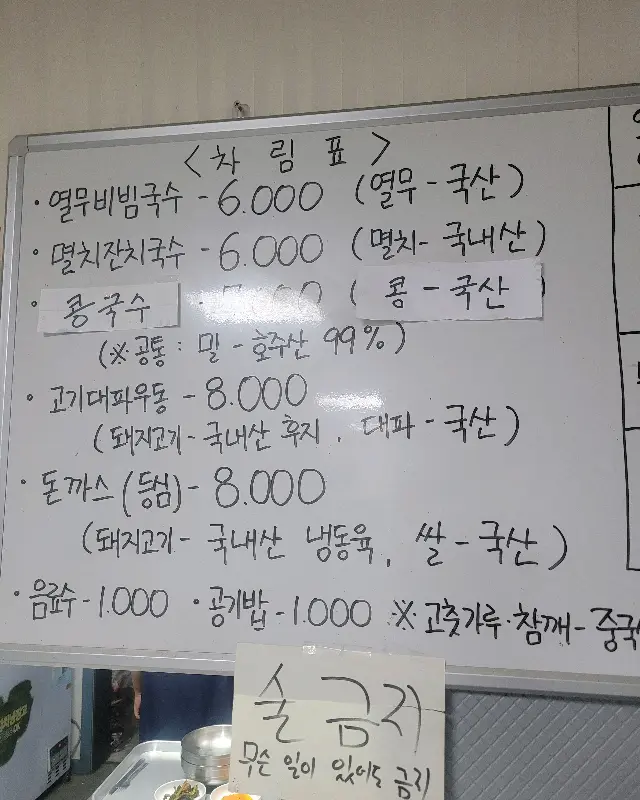 <차림표>
· 열무비빔국수 - 6.000 (열무 - 국산)
· 멸치잔치국수 - 6.000 (멸치 - 국내산)
· 콩국수 - 7.000 (콩 - 국산)
(※공통 : 밀 - 호주산 99%)
· 고기대파우동 - 8.000
(돼지고기 - 국내산 후지, 대파 - 국산)
· 돈까스(등심) - 8.000
(돼지고기 - 국내산 냉동육, 쌀 - 국산)
· 음료수 - 1.000 · 공기밥 - 1.000 ※고춧가루·참깨 - 중국
술 금지
무슨 일이 있어도 금지